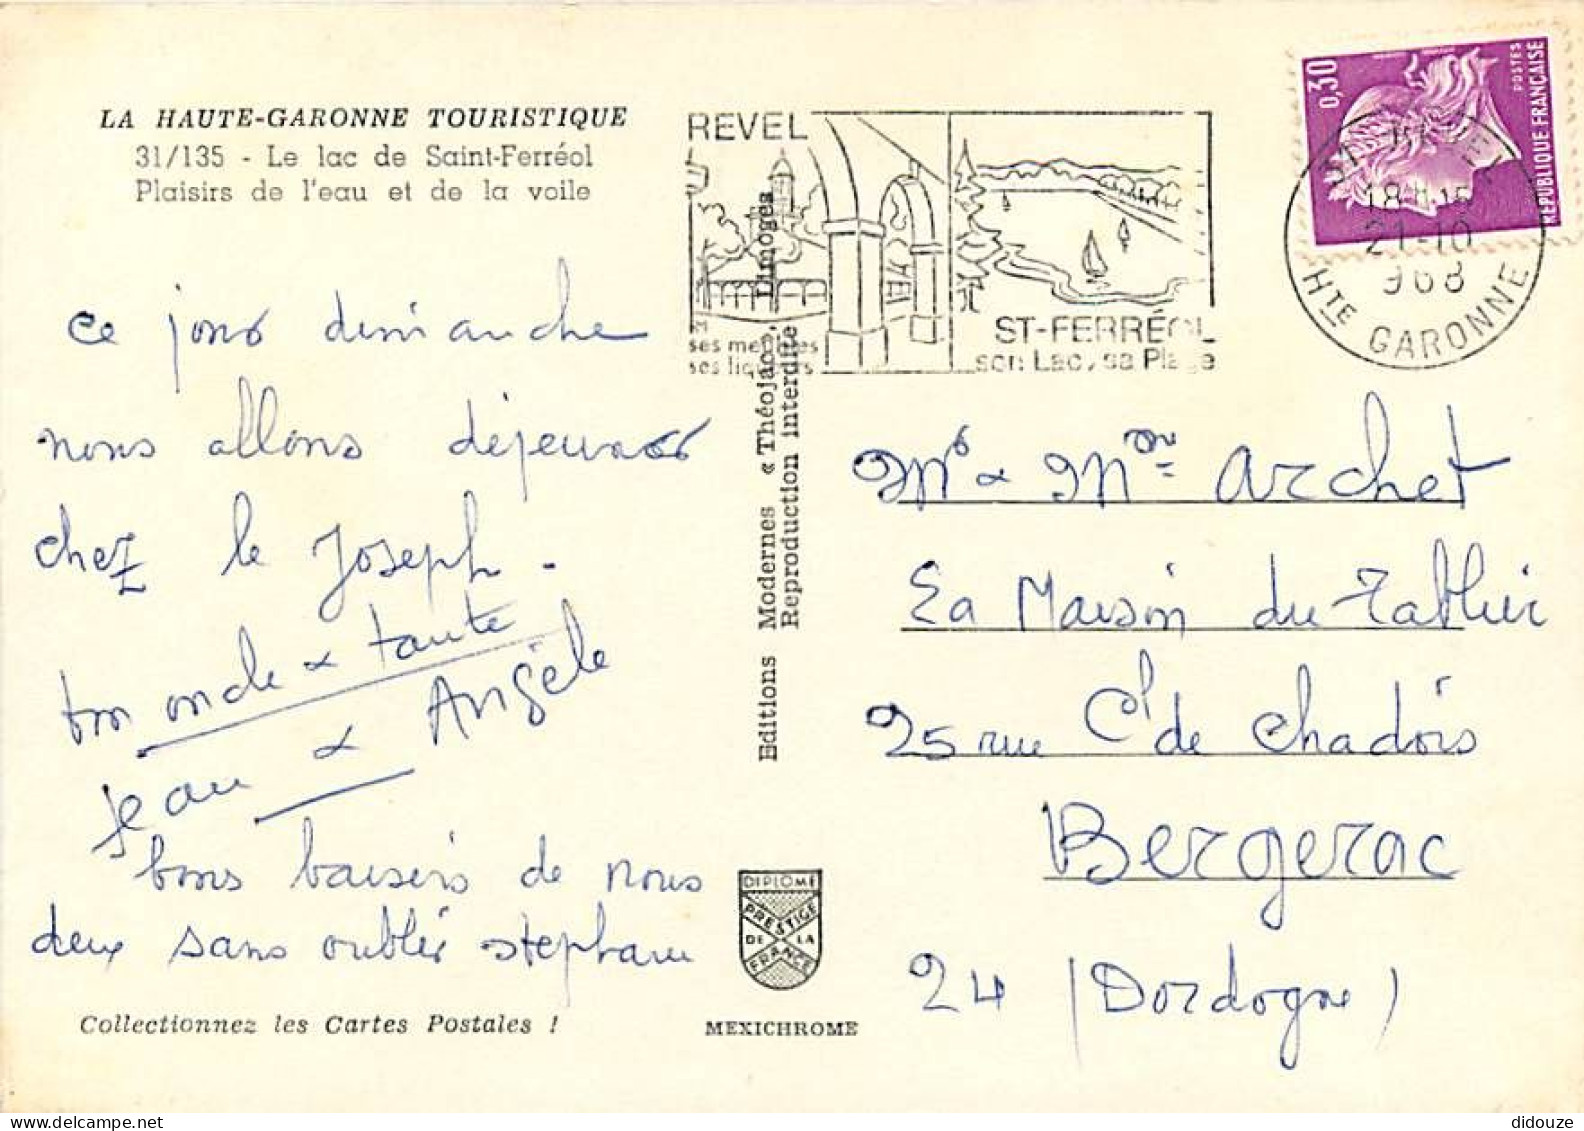 LA HAUTE-GARONNE TOURISTIQUE
31/135 - Le lac de Saint-Ferréol
Plaisirs de l'eau et de la voile
ce jour dimanche
nous allons déjeuner
chez le Joseph.
ton oncle & tante
Jean & Angèle
bons baisers de nous
deux sans oublier
Collectionnez les Cartes Postales !
Editions Modernes « Théojac », Limoges
Reproduction interdite
DIPLOME
PRESTIGE
DE LA
FRANCE
MEXICHROME
REVEL
ses meubles
ses liqueurs
ST-FERRÉOL
son Lac, sa Plage
0,30
POSTES
REPUBLIQUE FRANÇAISE
31 REVEL
21-10
968
HTE GARONNE
Mr & Mme Archet
La Maison du Tablier
25 rue Ct de Chadois
Bergerac
24 (Dordogne)
didouze